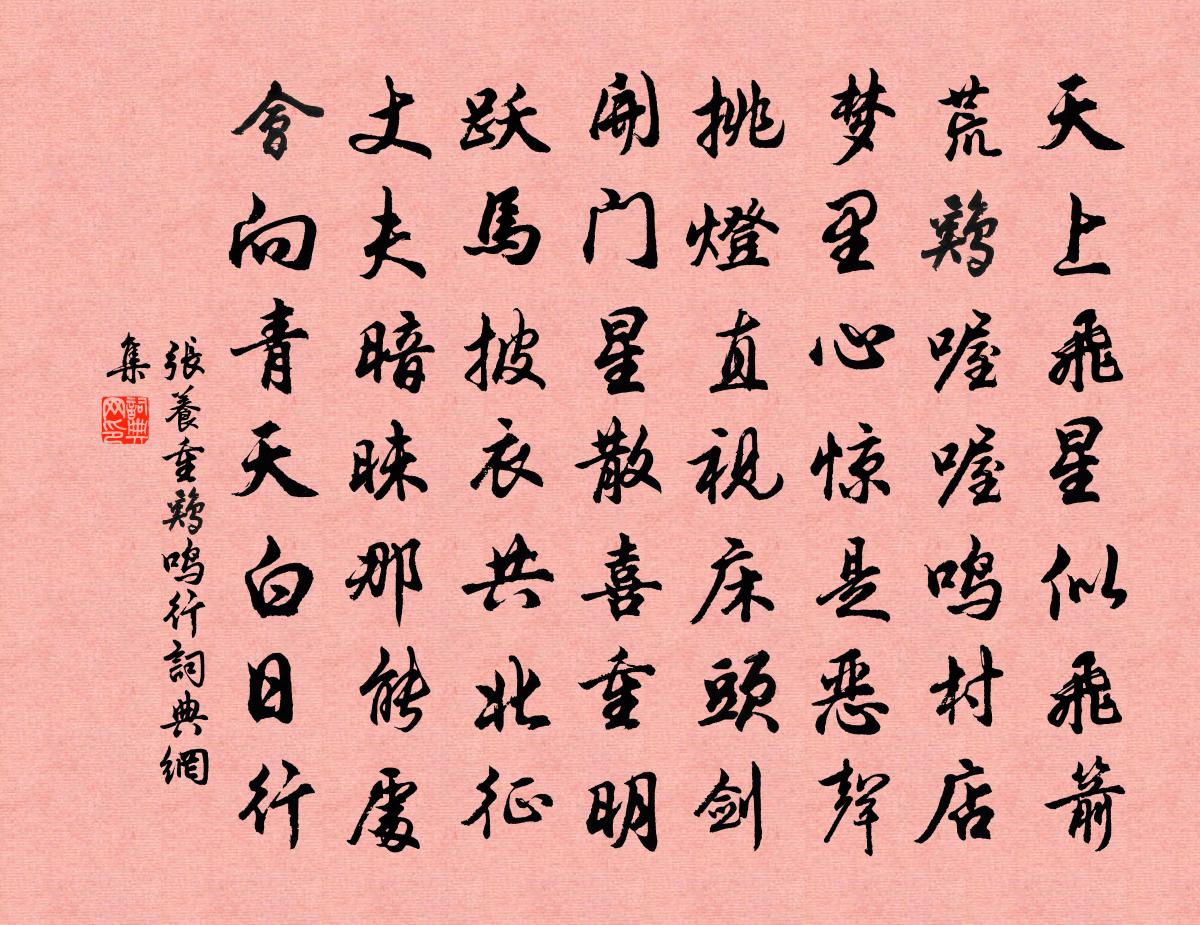 天上飛星似飛箭
荒鷄喔喔鳴村店
梦里心惊是恶聲
挑燈直視床頭剑
開门星散喜重明
跃馬披衣共北征
丈夫暗昧那能處
會向青天白日行
張養重鷄鳴行詞典網
集
詞典
网印